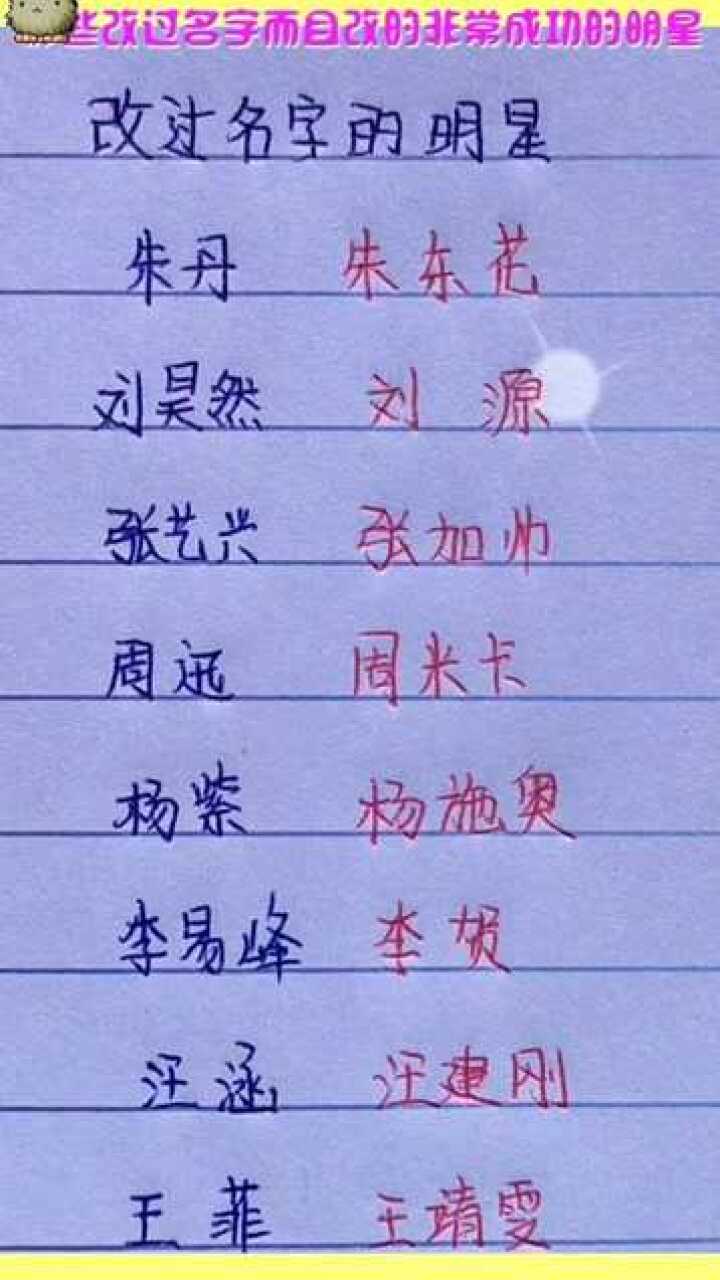 些改过名字而且改的非常成功的明星
改过名字的明星
朱丹 朱东花
刘昊然 刘 源
张艺兴 张加帅
周迅 周米卡
杨紫 杨施奥
李易峰 李贺
汪涵 汪建刚
王菲 王靖雯